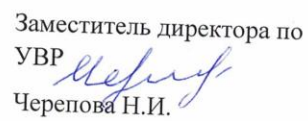 Заместитель директора по
УВР
Черепова Н.И.